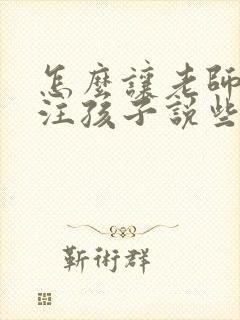 怎麼讓老師
注孩子說些
靳術群